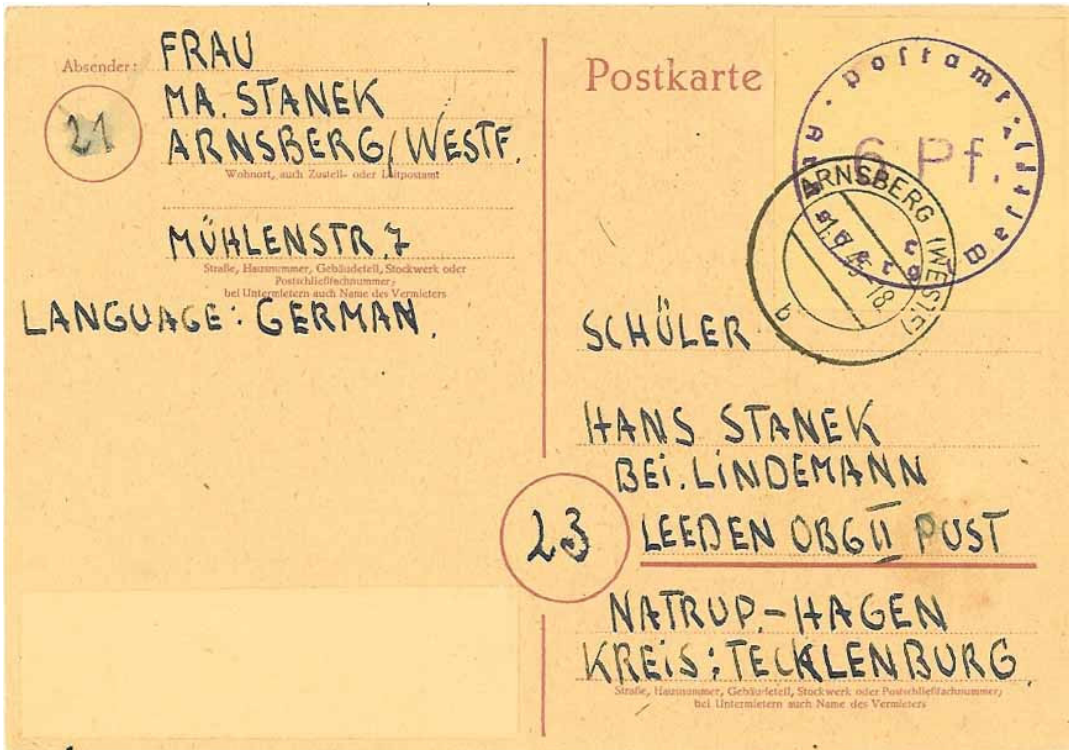 Absender:
FRAU
MA. STANEK
21
ARNSBERG/WESTF.
Wohnort, auch Zustell- oder Leitpostamt
MÜHLENSTR. 7
Straße, Hausnummer, Gebäudeteil, Stockwerk oder
Postschließfachnummer;
bei Untermietern auch Name des Vermieters
LANGUAGE: GERMAN.
Postkarte
postamt
6 Pf.
ARNSBERG (WESTF)
b
SCHÜLER
HANS STANEK
BEI. LINDEMANN
23
LEEDEN OBG II POST
NATRUP.-HAGEN
KREIS: TECKLENBURG.
Straße, Hausnummer, Gebäudeteil, Stockwerk oder Postschließfachnummer;
bei Untermietern auch Name des Vermieters